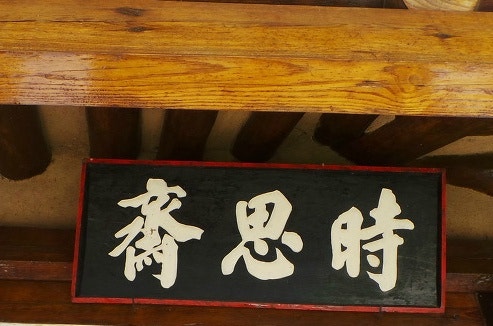 時思齋